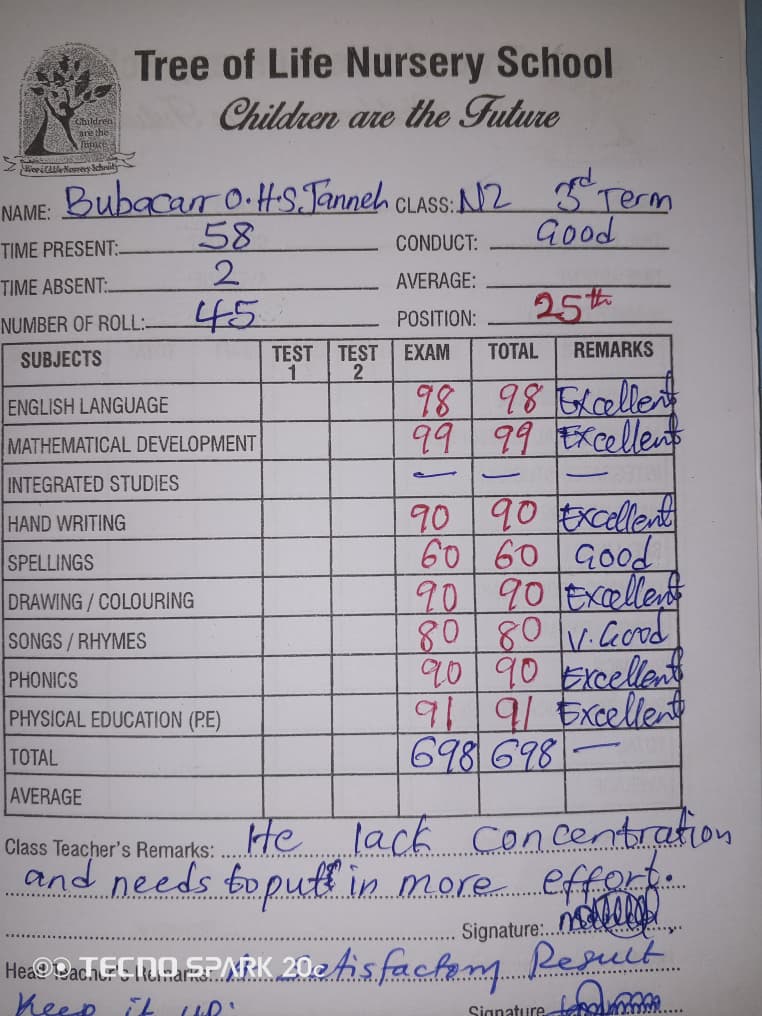 Tree of Life Nursery School
Children are the Future
Children
are the
future
NAME: Bubacarr O.H.S. Janneh CLASS: N2 3rd Term
TIME PRESENT: 58 CONDUCT: Good
TIME ABSENT: 2 AVERAGE:
NUMBER OF ROLL: 45 POSITION: 25th
SUBJECTS TEST 1 TEST 2 EXAM TOTAL REMARKS
ENGLISH LANGUAGE 98 98 Excellent
MATHEMATICAL DEVELOPMENT 99 99 Excellent
INTEGRATED STUDIES — — —
HAND WRITING 90 90 Excellent
SPELLINGS 60 60 Good
DRAWING / COLOURING 90 90 Excellent
SONGS / RHYMES 80 80 V. Good
PHONICS 90 90 Excellent
PHYSICAL EDUCATION (P.E) 91 91 Excellent
TOTAL 698 698 —
AVERAGE
Class Teacher's Remarks: He lack concentration
and needs to put in more effort.
Signature:
Head Teacher's Remarks: A Satisfactory Result
TECNO SPARK 20c
Keep it up. Signature